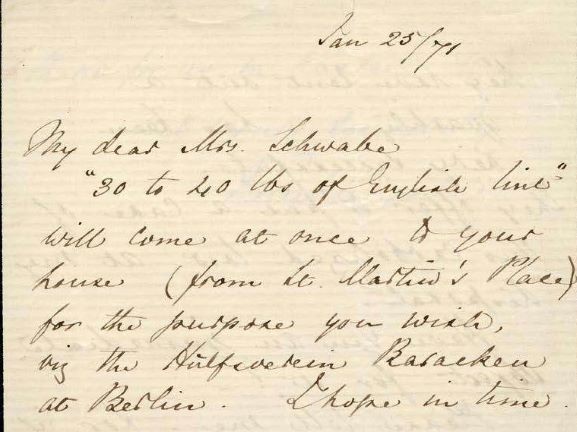 Jan 25/71
My dear Mrs. Schwabe
"30 to 40 lbs of English lint"
will come at once to your
house (from St. Martin's Place)
for the purpose you wish,
viz the Hülfsverein Baracken
at Berlin. I hope in time.